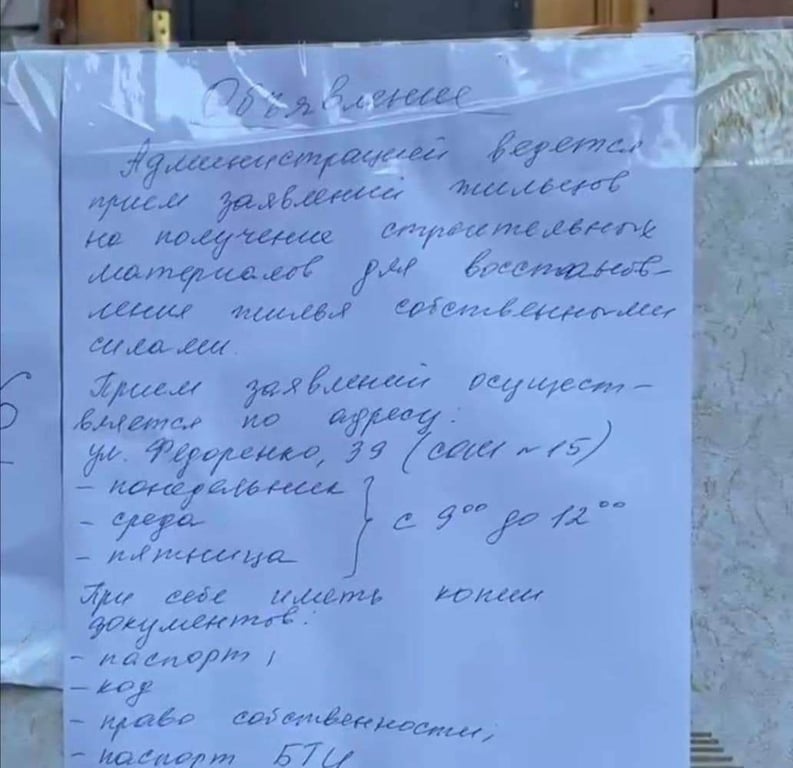 Объявление
Администрацией ведется
прием заявлений жильцов
на получение строительных
материалов для восстанов-
ления жилья собственными
силами.
Прием заявлений осущест-
вляется по адресу:
ул. Федоренко, 39 (сош №15)
- понедельник
- среда
- пятница
с 9⁰⁰ до 12⁰⁰
При себе иметь копии
документов:
- паспорт;
- код
- право собственности;
- паспорт БТИ